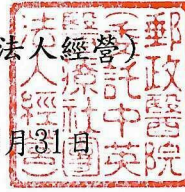 法人經營)
月31日
郵政醫院
委託中英
醫療社團
法人經營